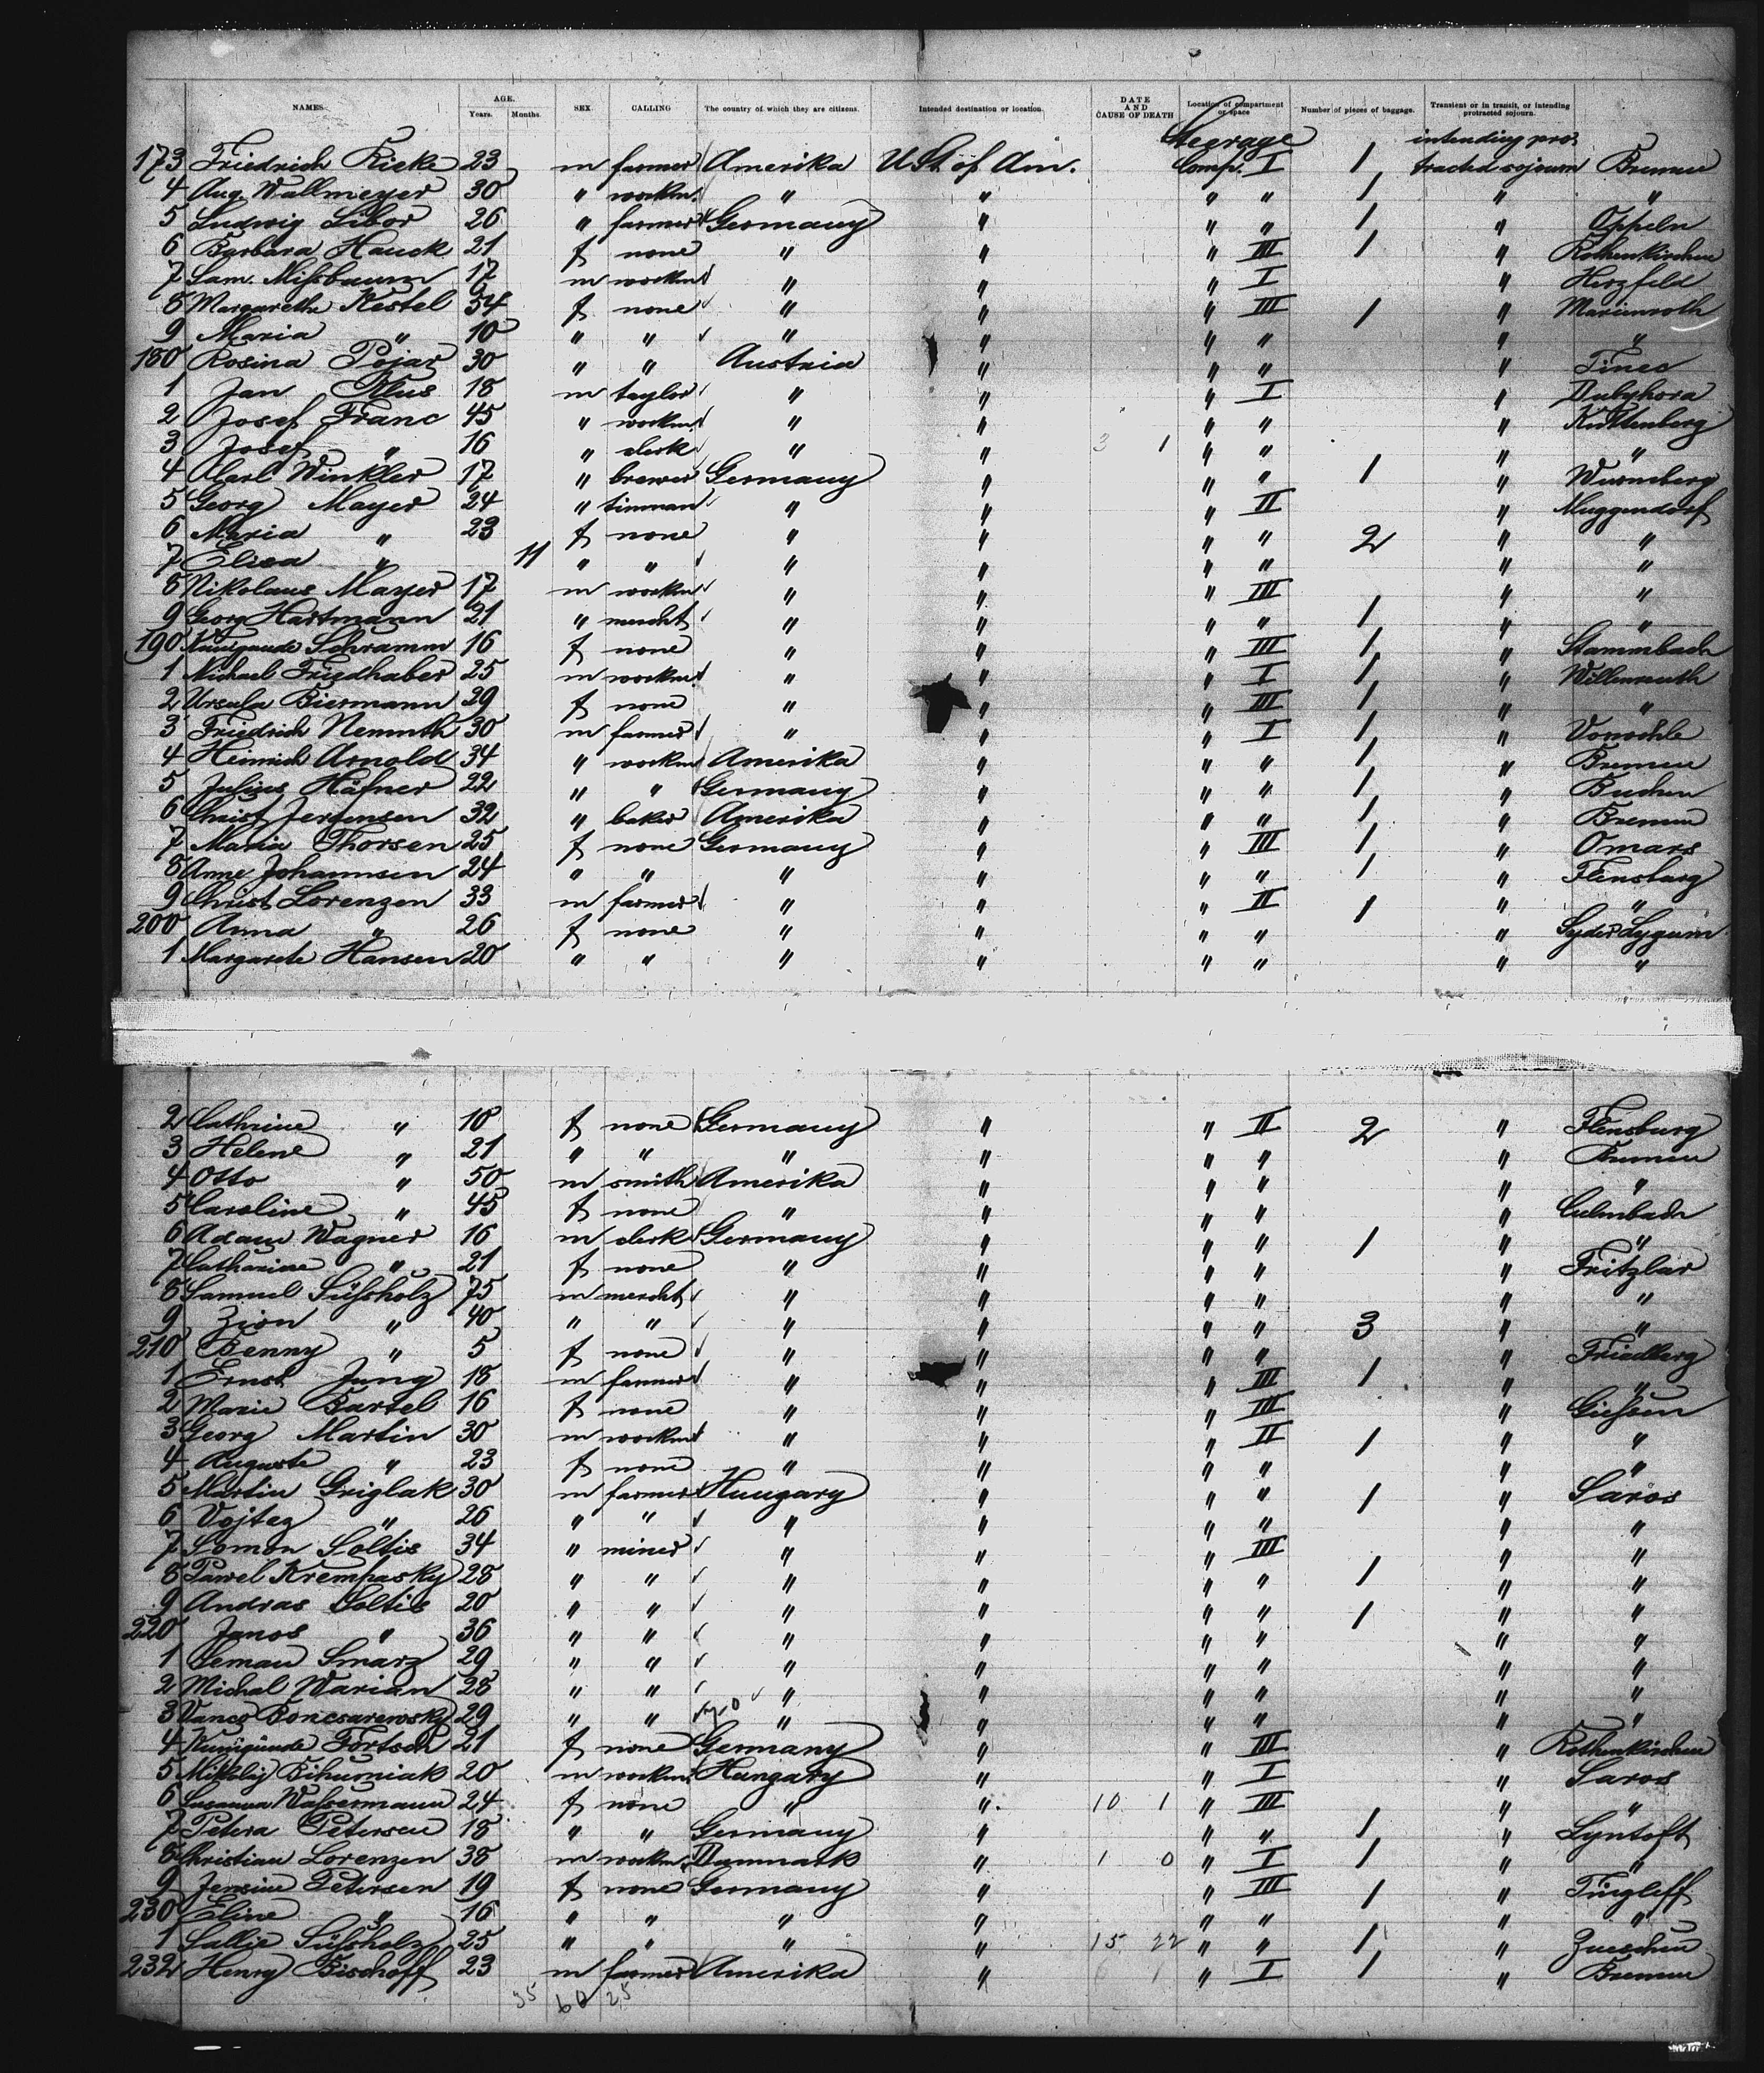 NAMES. AGE. Years. Months. SEX. CALLING The country of which they are citizens. Intended destination or location. DATE AND CAUSE OF DEATH Location of compartment or space Number of pieces of baggage. Transient or in transit, or intending protracted sojourn.
Steerage intending pro-
173 Friedrich Rieke 23 m farmer Amerika U. St. of Am. Comp. I 1 tracted sojourn Bremen
4 Aug. Wallmeyer 30 " workm. " " " " 1 " "
5 Ludwig Libor 26 " farmer Germany " " " 1 " Oppeln
6 Barbara Hauck 21 f none " " " III 1 " Rothenkirchen
7 Sam. Missbaum 17 m workm " " " I " Herzfeld
8 Margarethe Kestel 54 f none " " " III 1 " Marienroth
9 Maria " 10 " " " " " " " "
180 Rosina Pojar 30 " " Austria " " " " Tinec
1 Jan Klus 18 m taylor " " " I " Dubyhora
2 Josef Franc 45 " workm. " " " " " Kuttenberg
3 Josef " 16 " clerk " " 3 1 " " " "
4 Carl Winkler 17 " brewer Germany " " " 1 " Wurmberg
5 Georg Mayer 24 " tinman " " " II " Muggendorf
6 Maria " 23 f none " " " " 2 " "
7 Elisa " 11 " " " " " " " "
8 Nikolaus Mayer 17 m workm " " " III " "
9 Georg Hartmann 21 " mercht " " " " 1 " "
190 Kunigunde Schramm 16 f none " " " III 1 " Stammbach
1 Michael Friedhaber 25 m workm. " " " I 1 " Willenreuth
2 Ursula Biermann 29 f none " " " III 1 " "
3 Friedrich Nemnth 30 m farmer " " " I 1 "
4 Heinrich Arnold 34 " workm Amerika " " " 1 " Bremen
5 Julius Häfner 22 " " Germany " " " 1 " Buchen
6 Christ Jertensen 32 " baker Amerika " " " 1 " Bremen
7 Maria Thorsen 25 f none Germany " " III 1 " Omars
8 Anne Johannsen 24 " " " " " " 1 " Flensburg
9 Christ Lorenzen 33 m farmer " " " II 1 " "
200 Anna " 26 f none " " " " " Syder Lygum
1 Margarete Hansen 20 " " " " " " " "
2 Cathrine " 18 f none Germany " " II 2 " Flensburg
3 Helene " 21 " " " " " " " Bremen
4 Otto " 50 m smith Amerika " " " " "
5 Caroline " 45 f none " " " " " Culmbach
6 Adam Wagner 16 m clerk Germany " " " 1 " "
7 Catharine " 21 f none " " " " " Fritzlar
8 Samuel Süssholz 75 m mercht " " " " " "
9 Zion " 40 " " " " " " 3 " "
210 Benny " 5 f none " " " " " Friedberg
1 Ernst Jung 18 m farmer " " " III 1 " "
2 Marie Bartel 16 f none " " " III " Giessen
3 Georg Martin 30 m workm " " " II 1 " "
4 Auguste " 23 f none " " " " " "
5 Martin Griglak 30 m farmer Hungary " " " 1 " Saros
6 Vojtez " 26 " " " " " " " "
7 Somon Soltis 34 " miner " " " III " "
8 Pawel Krempasky 28 " " " " " " 1 " "
9 Andras Soltis 20 " " " " " " 1 " "
220 Janos " 36 " " " " " " " "
1 Seman Smarz 29 " " " " " " " "
2 Michal Warian 28 " " " " " " " "
3 Vanco Boncsarewsky 29 " " " " " " " "
4 Kunigunde Förtsch 21 f none Germany " " III " Rothenkirchen
5 Mikolaj Bihuniak 20 m workm. Hungary " " I " Saros
6 Susanna Wassermann 24 f none " " 10 1 " III " "
7 Petera Petersen 18 " " Germany " " " 1 " Lyntoft
8 Christian Lorenzen 38 m workm. Danmark " 1 0 " I 1 " "
9 Jensine Petersen 19 f none Germany " " III 1 " Tingleff
230 Eline " 16 " " " " " " " "
1 Sallie Süssholz 25 " " " " 15 22 " " 1 " Zueschen
232 Henry Bischoff 23 m farmer Amerika " 6 1 " I 1 " Bremen
35 60 25